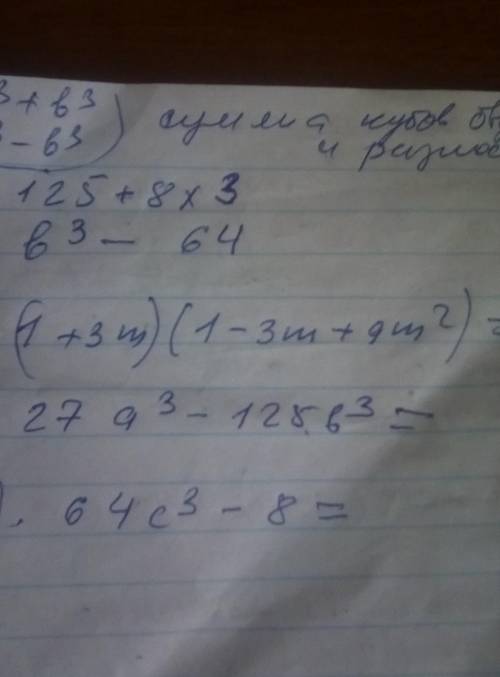 ³ + b³
³ - b³) сумма кубов
и
125 + 8x3
b³ - 64
(1 + 3m)(1 - 3m + 9m²) =
27a³ - 125b³ =
). 64c³ - 8 =